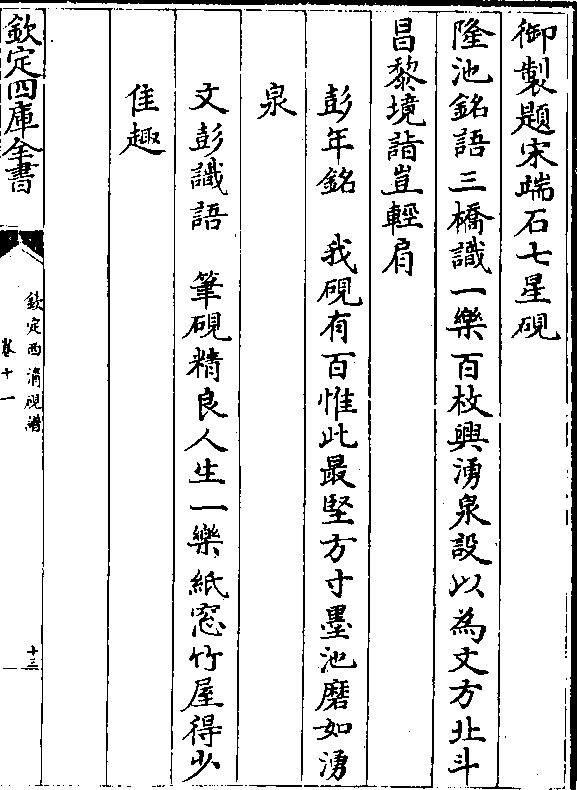 御製題宋端石七星硯
隆池銘語三橋識一樂百枚興湧泉設以為文方北斗
昌黎境詣豈輕肩
彭年銘　我硯有百惟此最堅方寸墨池磨如湧
泉
文彭識語　筆硯精良人生一樂紙窓竹屋得少
佳趣
欽定四庫全書
欽定西清硯譜
卷十一
十三